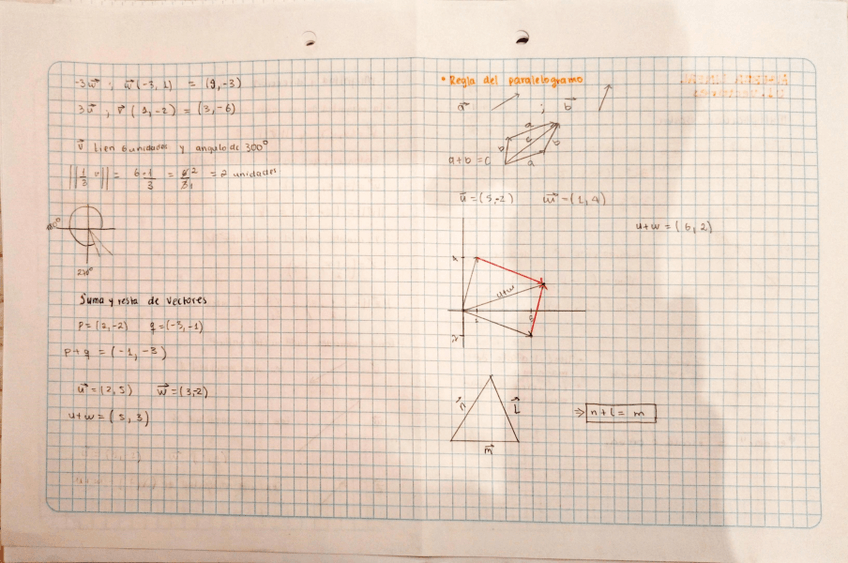 -3w⃗ ; w⃗(-3, 1) = (9, -3)
v⃗ tien 6 unidades y angulo de 300°
= 2 unidades
270°
Suma y resta de vectores
p = (2, -2) q⃗ = (-3, -1)
p + q = (-1, -3)
u⃗ = (2, 5) w⃗ = (3, -2)
u + w = (5, 3)
• Regla del paralelogramo
a⃗ ; b⃗
a
b c b
a + b = c a
u⃗ = (5, -2) w⃗ = (1, 4)
u + w = (6, 2)
u+w
n⃗ L⃗
⇒ n + L = m
m⃗